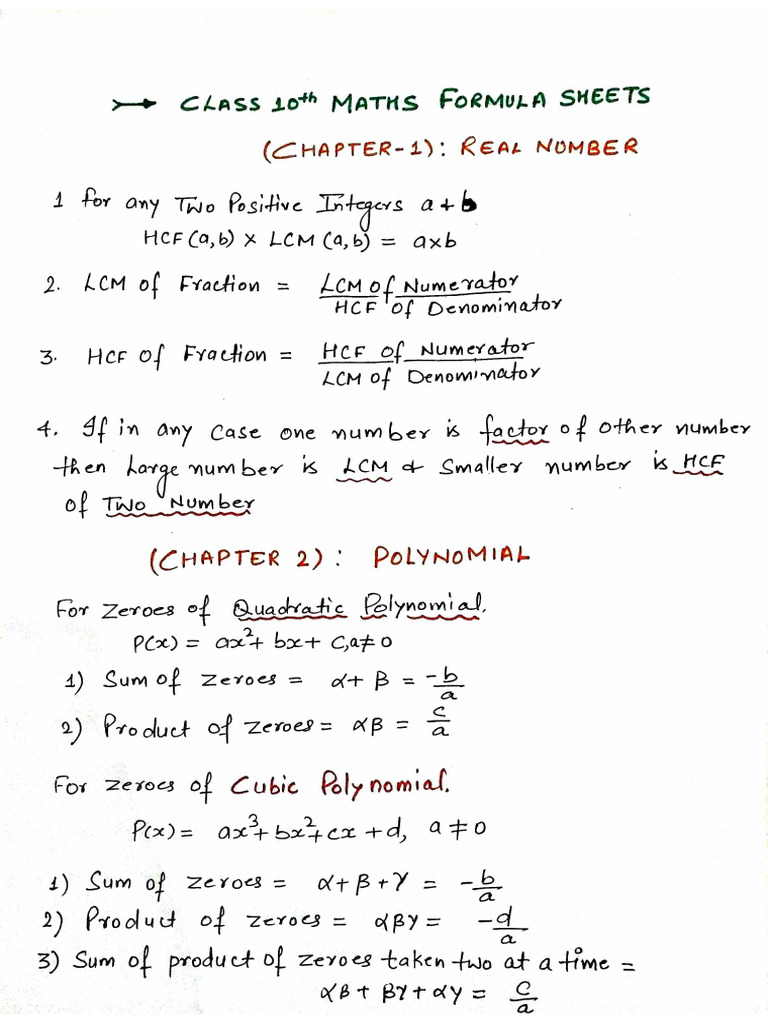 → CLASS 10th MATHS FORMULA SHEETS
(CHAPTER-1): REAL NUMBER
1 for any Two Positive Integers a & b
HCF (a,b) × LCM (a,b) = a×b
2. LCM of Fraction = LCM of Numerator / HCF of Denominator
3. HCF of Fraction = HCF of Numerator / LCM of Denominator
4. If in any case one number is factor of other number
then Large number is LCM & Smaller number is HCF
of Two Number
(CHAPTER 2): POLYNOMIAL
For Zeroes of Quadratic Polynomial.
P(x) = ax²+ bx+ C, a≠0
1) Sum of zeroes = α+ β = -b/a
2) Product of zeroes = αβ = c/a
For zeroes of Cubic Polynomial.
P(x) = ax³+bx²+cx +d, a ≠ 0
1) Sum of zeroes = α+β+γ = -b/a
2) Product of zeroes = αβγ = -d/a
3) Sum of product of zeroes taken two at a time =
αβ+ βγ+αγ = c/a